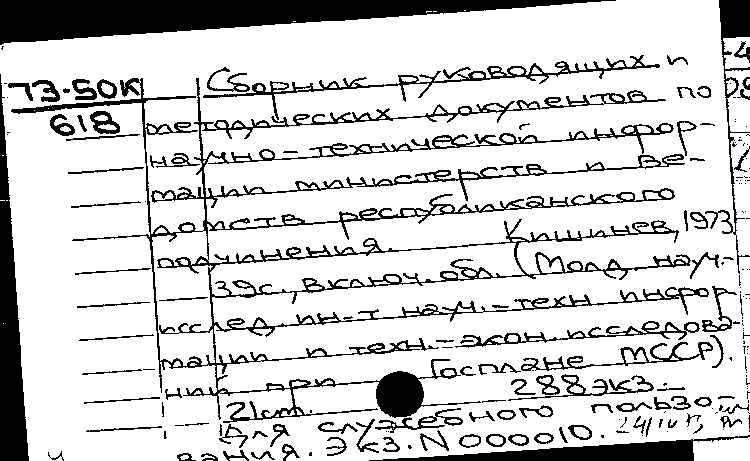 73-50К
618
Сборник руководящих и
методических документов по
научно-технической инфор-
мации министерств и ве-
домств республиканского
подчинения. Кишинев, 1973
39с., включ. обл. (Молд. науч.-
исслед. ин-т науч.-техн инфор
мации и техн.-экон. исследова-
ний при Госплане МССР).
21cm. 288экз.-
Для служебного пользо-
вания. Экз. N000010.